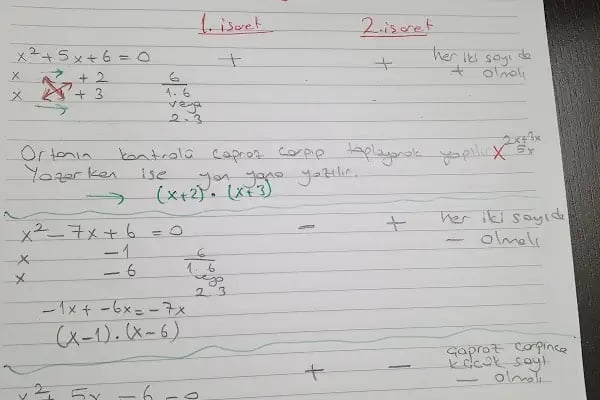 1. işaret 2. işaret
x² + 5x + 6 = 0 + + her iki sayı da
x + 2 6 + olmalı
x + 3 1.6
veya
2.3
Ortanın kontrolü çapraz çarpıp toplayarak yapılır. x 2x+3x
5x
Yazarken ise yan yana yazılır.
→ (x+2) · (x+3)
x² − 7x + 6 = 0 − + her iki sayı da
x − 1 6 − olmalı
x − 6 1.6
veya
2 3
−1x + −6x = −7x
(x−1) . (x−6)
çapraz çarpınca
+ − küçük sayı
− olmalı
x² + 5x − 6 = 0